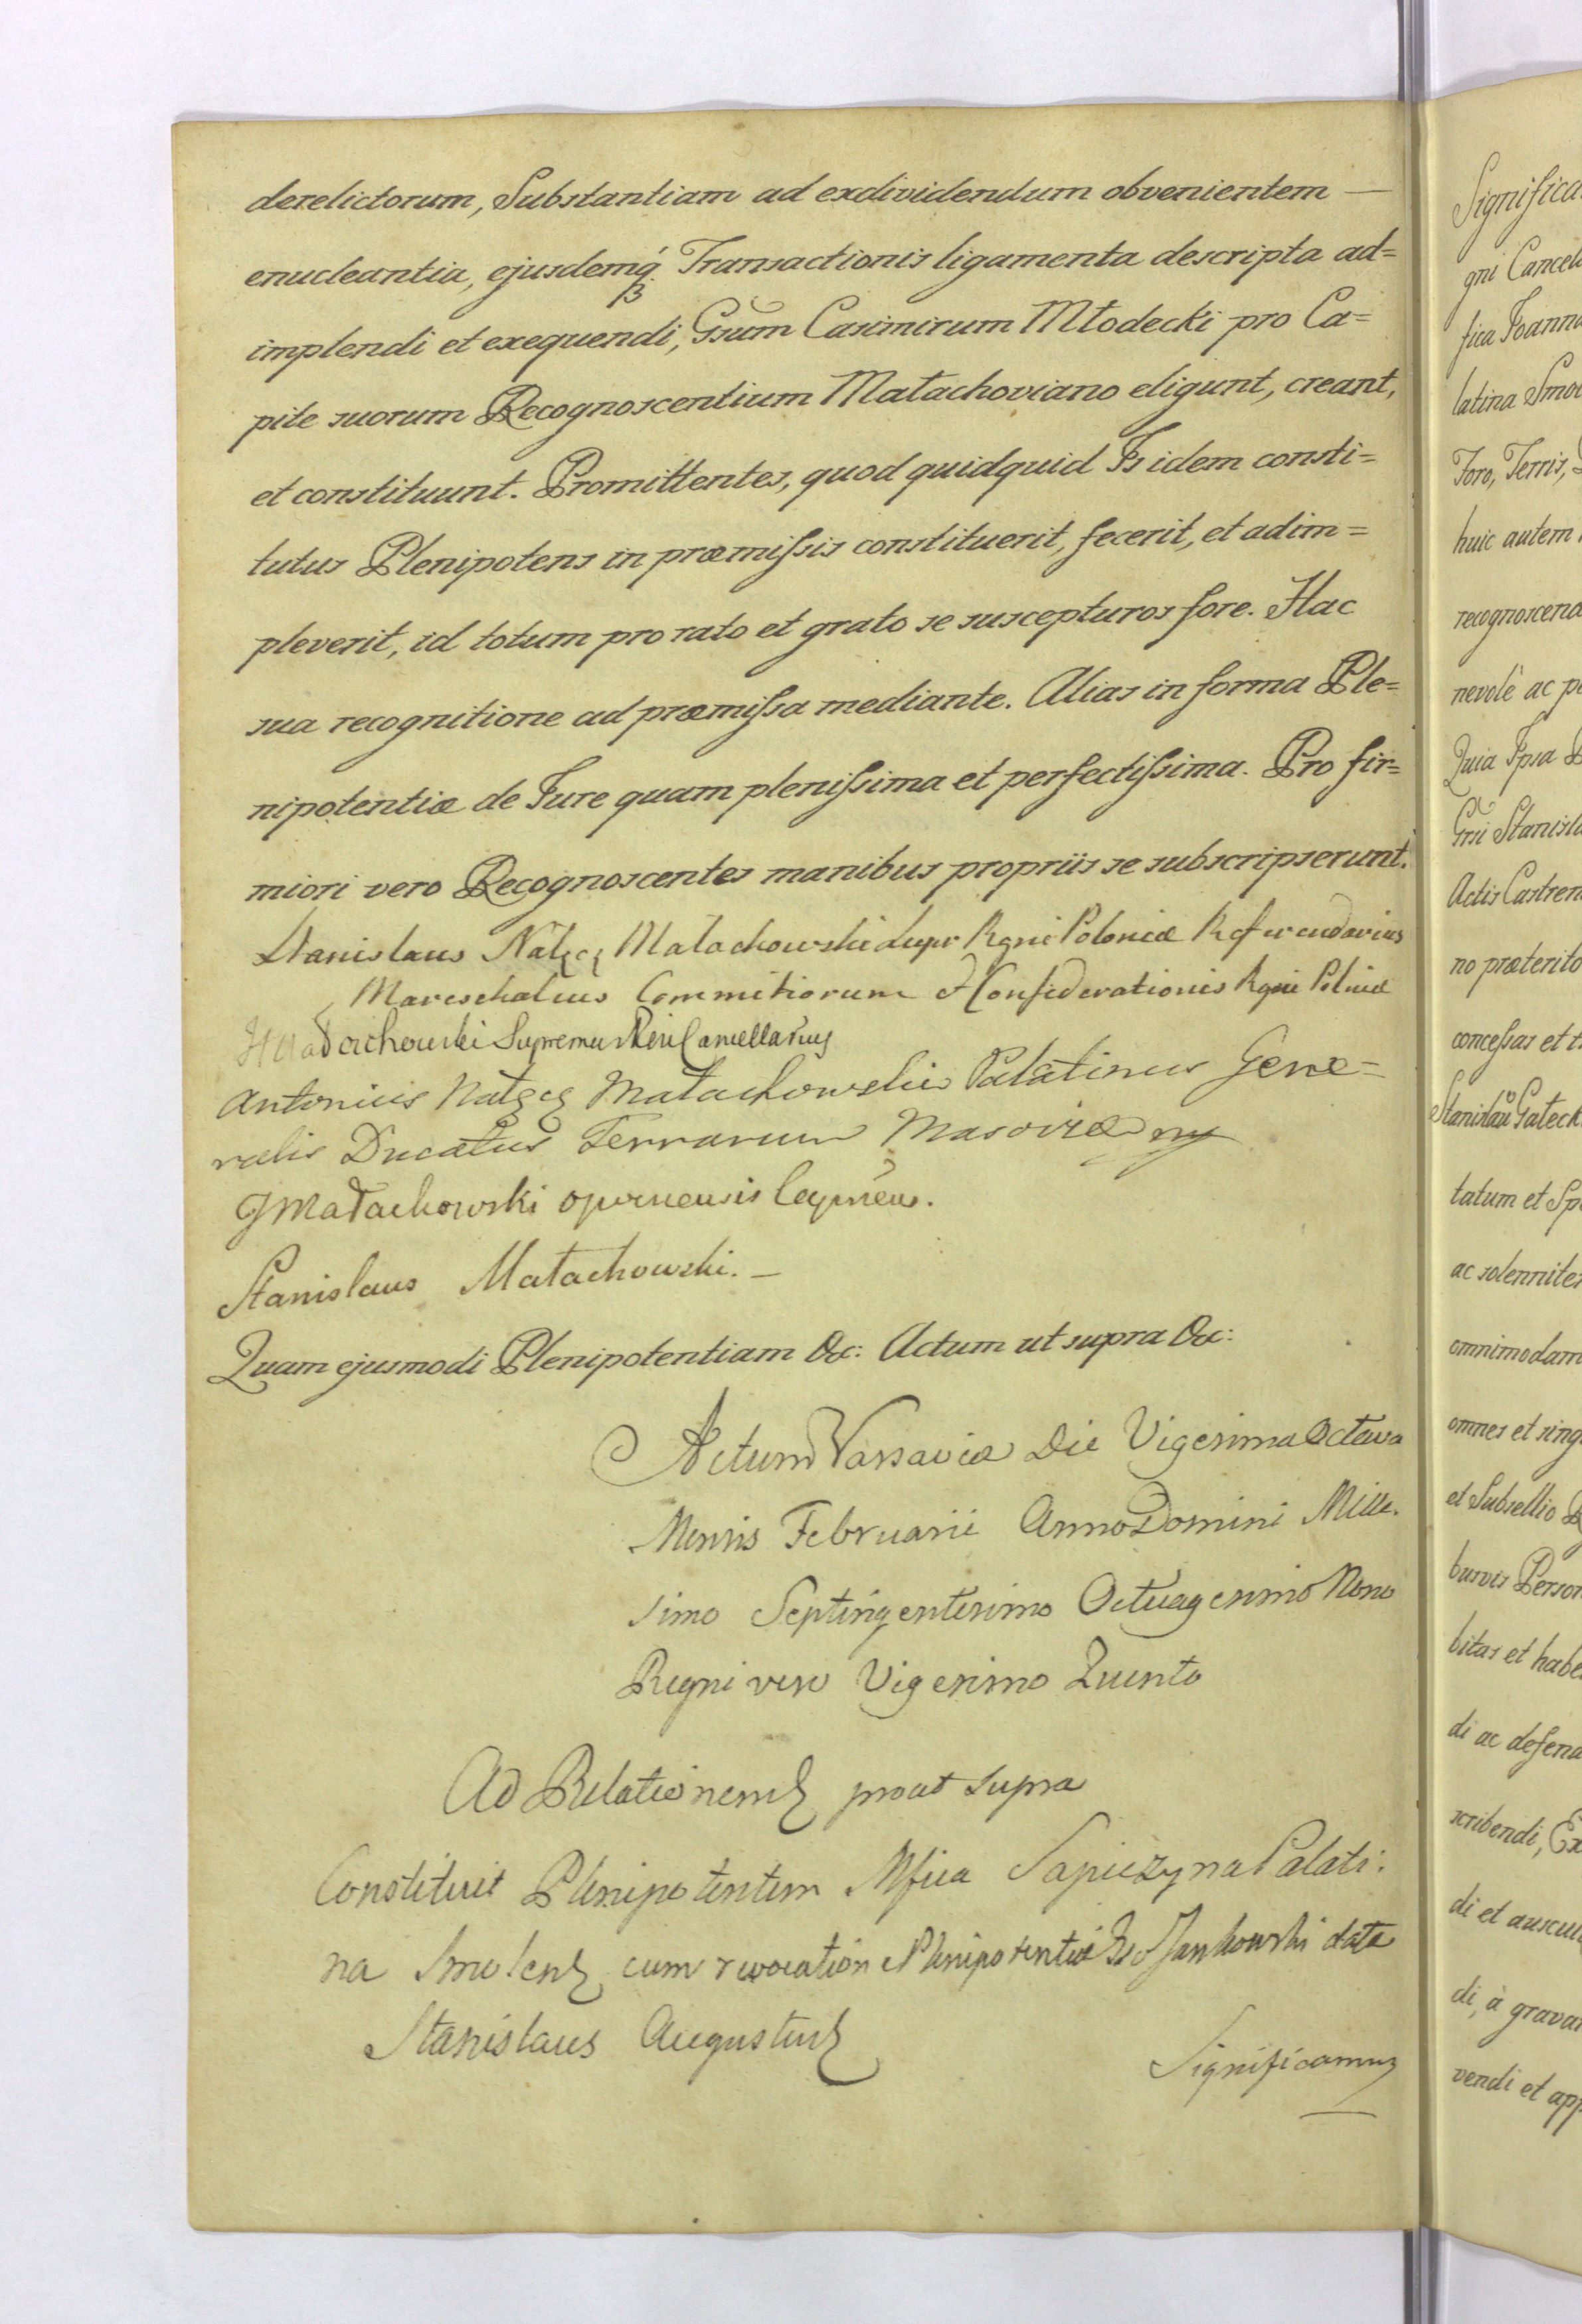 derelictorum, Substantiam ad exdividendum obvenientem —
enucleantia, ejusdemq́ Transactionis ligamenta descripta ad=
implendi et exequendi, Gsum Casimirum Młodecki pro Ca=
pite suorum Recognoscentium Małachoviano eligunt, creant,
et constituunt. Promittentes, quod quidquid Is idem consti=
tutus Plenipotens in præmiſsis constituerit, fecerit, et adim=
pleverit, id totum pro rato et grato se suscepturos fore. Hac
sua recognitione ad præmiſsa mediante. Alias in forma Ple=
nipotentiæ de Jure quam pleniſsima et perfectiſsima. Pro fir=
miori vero Recognoscentes manibus propriis se subscripserunt.
Stanislaus Nałęcz Małachowski Supr Rgni Poloniæ Referendarius
Mareschalcus Commitiorum & Confiderationis Rgni Polniæ
Małachowski Supremus Cancellarius
Antonius Nałęcz Małachowski Palatinus Gene=
ralis Ducatus Terrarum Masoviæ mp
J Małachowski
Stanislaus Małachowski. —
Quam ejusmodi Plenipotentiam &c: Actum ut supra &c:
Actum Varsaviæ Die Vigesima Octava
Mensis Februarii Anno Domini Mille.
simo Septingentesimo Octuagesimo Nono
Regni vero Vigesimo Quinto
Ad Relationem prout supra
Constituit Plenipotentem Mfica Sapieżyna Palati:
na Smolens cum revocation Plenipotentiæ Jankowski data
Stanislaus Augustus
Significamus
Significa
gni Cancel
fica Joanna
latina Smo
Foro, Terris,
huic autem
recognoscend
nevolè ac pe
Quia Ipsa
Grii Stanisla
Actis Castren
no præterito
conceſsas et t
Stanislaũ Gałeck
tatum et Sp
ac solenniter
omnimodam
omnes et sing
et Subsellio
busvis Person
bitas et habe
di ac defend
scribendi, Ex
di et auscul
di, à grava
vendi et app